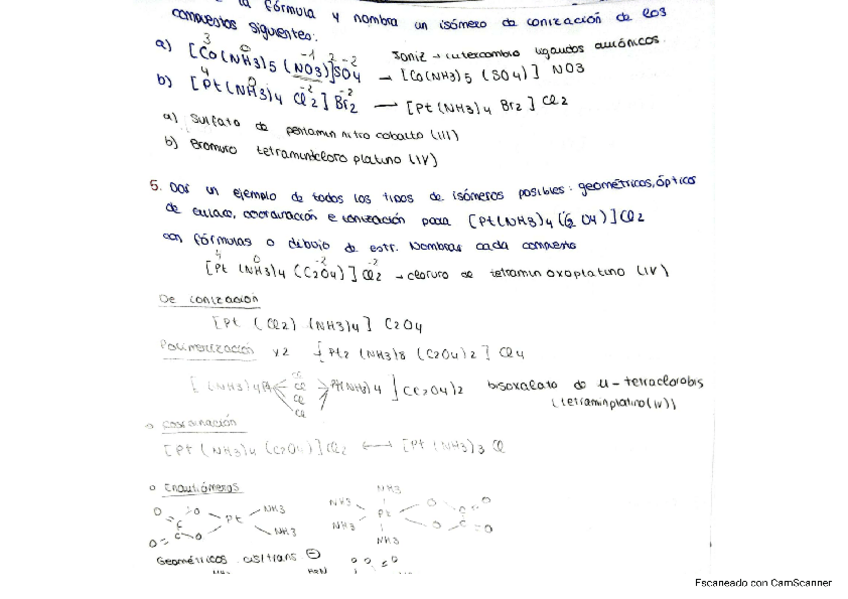 la fórmula y nombra un isómero de ionización de los
compuestos siguientes:
a) [Co(NH3)5 (NO3)]SO4 → [Co(NH3)5 (SO4)] NO3
Ioniz → intercambio ligandos aniónicos.
b) [Pt(NH3)4 Cl2] Br2 — [Pt(NH3)4 Br2] Cl2
a) Sulfato de pentamin nitro cobalto (III)
b) Bromuro tetramincloro platino (IV)
5. Dar un ejemplo de todos los tipos de isómeros posibles: geométricos, ópticos
de enlace, coordinación e ionización para [Pt(NH3)4(C2O4)]Cl2
con fórmulas o dibujo de estr. Nombrar cada compuesto
[Pt (NH3)4 (C2O4)] Cl2 → cloruro de tetramin oxoplatino (IV)
De ionización
[Pt (Cl2) (NH3)4] C2O4
Polimerización x2 [Pt2 (NH3)8 (C2O4)2] Cl4
[(NH3)4Pt Cl Cl Cl Cl Pt(NH3)4](C2O4)2 bisoxalato de μ-tetraclorobis
(tetraminplatino(IV))
Coordinación
[Pt (NH3)4 (C2O4)]Cl2 ←→ [Pt (NH3)3 Cl
Enantiómeros
O O Pt NH3 NH3 C C O O
NH3 NH3 NH3 NH3 Pt O O C C O O
Geométricos cis/trans
Escaneado con CamScanner